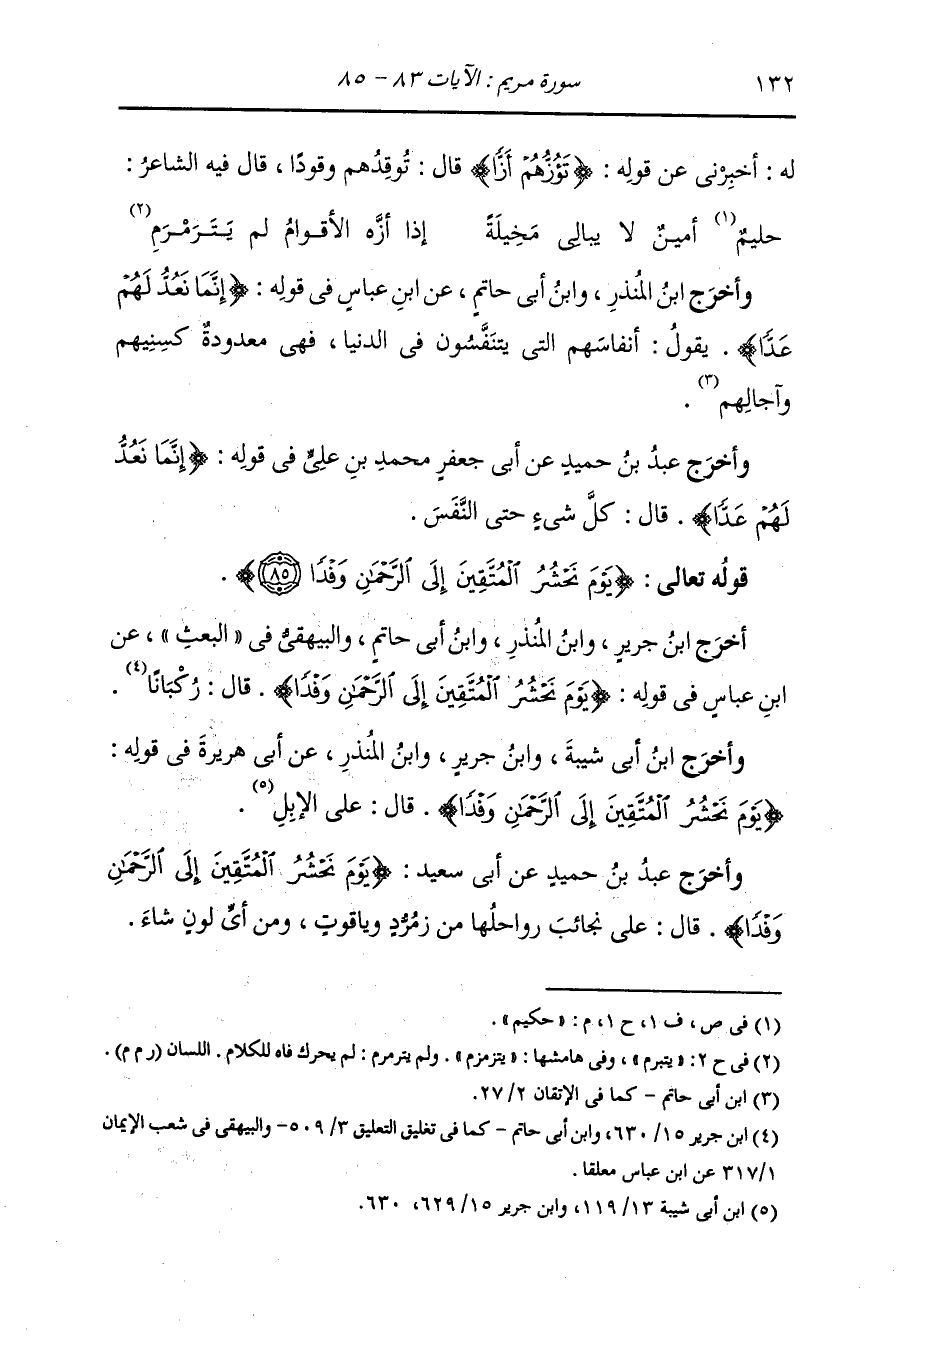 ١٣٢ سورة مريم : الآيات ٨٣ - ٨٥
له : أخبِرْنى عن قولِه : ﴿تَؤُزُّهُمْ أَزًّا﴾ قال : تُوقِدُهم وقودًا ، قال فيه الشاعرُ :
حليمٌ(١) أمينٌ لا يبالى مَخِيلَةً إذا أزَّه الأقـوامُ لم يَـتَـرَمْـرَمِ(٢)
وأخرَج ابنُ المُنذرِ ، وابنُ أبى حاتمٍ ، عن ابنِ عباسٍ فى قولِه : ﴿إِنَّمَا نَعُدُّ لَهُمْ
عَدًّا﴾ . يقولُ : أنفاسَهم التى يتنَفَّسُون فى الدنيا ، فهى معدودةٌ كسِنِيهم
وآجالِهم(٣) .
وأخرَج عبدُ بنُ حميدٍ عن أبى جعفرٍ محمدِ بنِ علِىٍّ فى قولِه : ﴿إِنَّمَا نَعُدُّ
لَهُمْ عَدًّا﴾ . قال : كلَّ شىءٍ حتى النَّفَسَ .
قولُه تعالى : ﴿يَوْمَ نَحْشُرُ ٱلْمُتَّقِينَ إِلَى ٱلرَّحْمَٰنِ وَفْدًا ٨٥﴾ .
أخرَج ابنُ جريرٍ ، وابنُ المُنذرِ ، وابنُ أبى حاتمٍ ، والبيهقىُّ فى « البعثِ » ، عن
ابنِ عباسٍ فى قولِه : ﴿يَوْمَ نَحْشُرُ ٱلْمُتَّقِينَ إِلَى ٱلرَّحْمَٰنِ وَفْدًا﴾ . قال : رُكْبَانًا(٤) .
وأخرَج ابنُ أبى شيبةَ ، وابنُ جريرٍ ، وابنُ المُنذرِ ، عن أبى هريرةَ فى قولِه :
﴿يَوْمَ نَحْشُرُ ٱلْمُتَّقِينَ إِلَى ٱلرَّحْمَٰنِ وَفْدًا﴾ . قال : على الإبِلِ(٥) .
وأخرَج عبدُ بنُ حميدٍ عن أبى سعيد : ﴿يَوْمَ نَحْشُرُ ٱلْمُتَّقِينَ إِلَى ٱلرَّحْمَٰنِ
وَفْدًا﴾ . قال : على نجائبَ رواحلُها من زمُرُّدٍ وياقوتٍ ، ومن أىِّ لونٍ شاءَ .
(١) فى ص ، ف ١ ، ح ١ ، م : « حكيم » .
(٢) فى ح ٢: « يتبرم » ، وفى هامشها : « يتزمزم » . ولم يترمرم : لم يحرك فاه للكلام . اللسان (ر م م) .
(٣) ابن أبى حاتم - كما فى الإتقان ٢/ ٢٧.
(٤) ابن جرير ١٥/ ٦٣٠، وابن أبى حاتم - كما فى تغليق التعليق ٣/ ٥٠٩- والبيهقى فى شعب الإيمان
٣١٧/١ عن ابن عباس معلقا .
(٥) ابن أبى شيبة ١٣/ ١١٩، وابن جرير ١٥/ ٦٢٩، ٦٣٠.